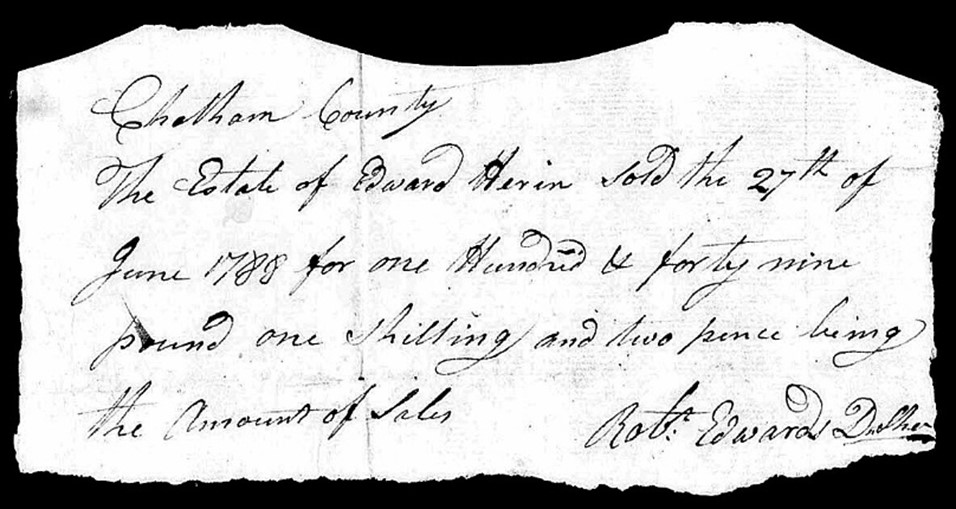 Chatham County
The Estate of Edward Herin Sold the 27th of
June 1788 for one Hundrd & forty nine
pound one Shilling and two pence being
the Amount of Sales
Robt. Edwards D Sher